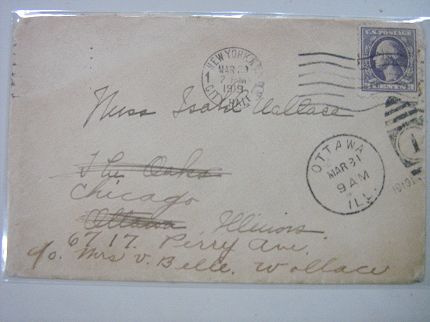 NEW YORK, N.Y.
MAR 29
7 PM
1919
CITY HALL
1
U.S. POSTAGE
3 CENTS 3
Miss Isabel Wallace
OTTAWA
MAR 31
9 AM
ILL.
1
1919
The Oaks
Chicago
Ottawa Illinois
6717. Perry Ave.
c/o. Mrs V. Belle. Wallace